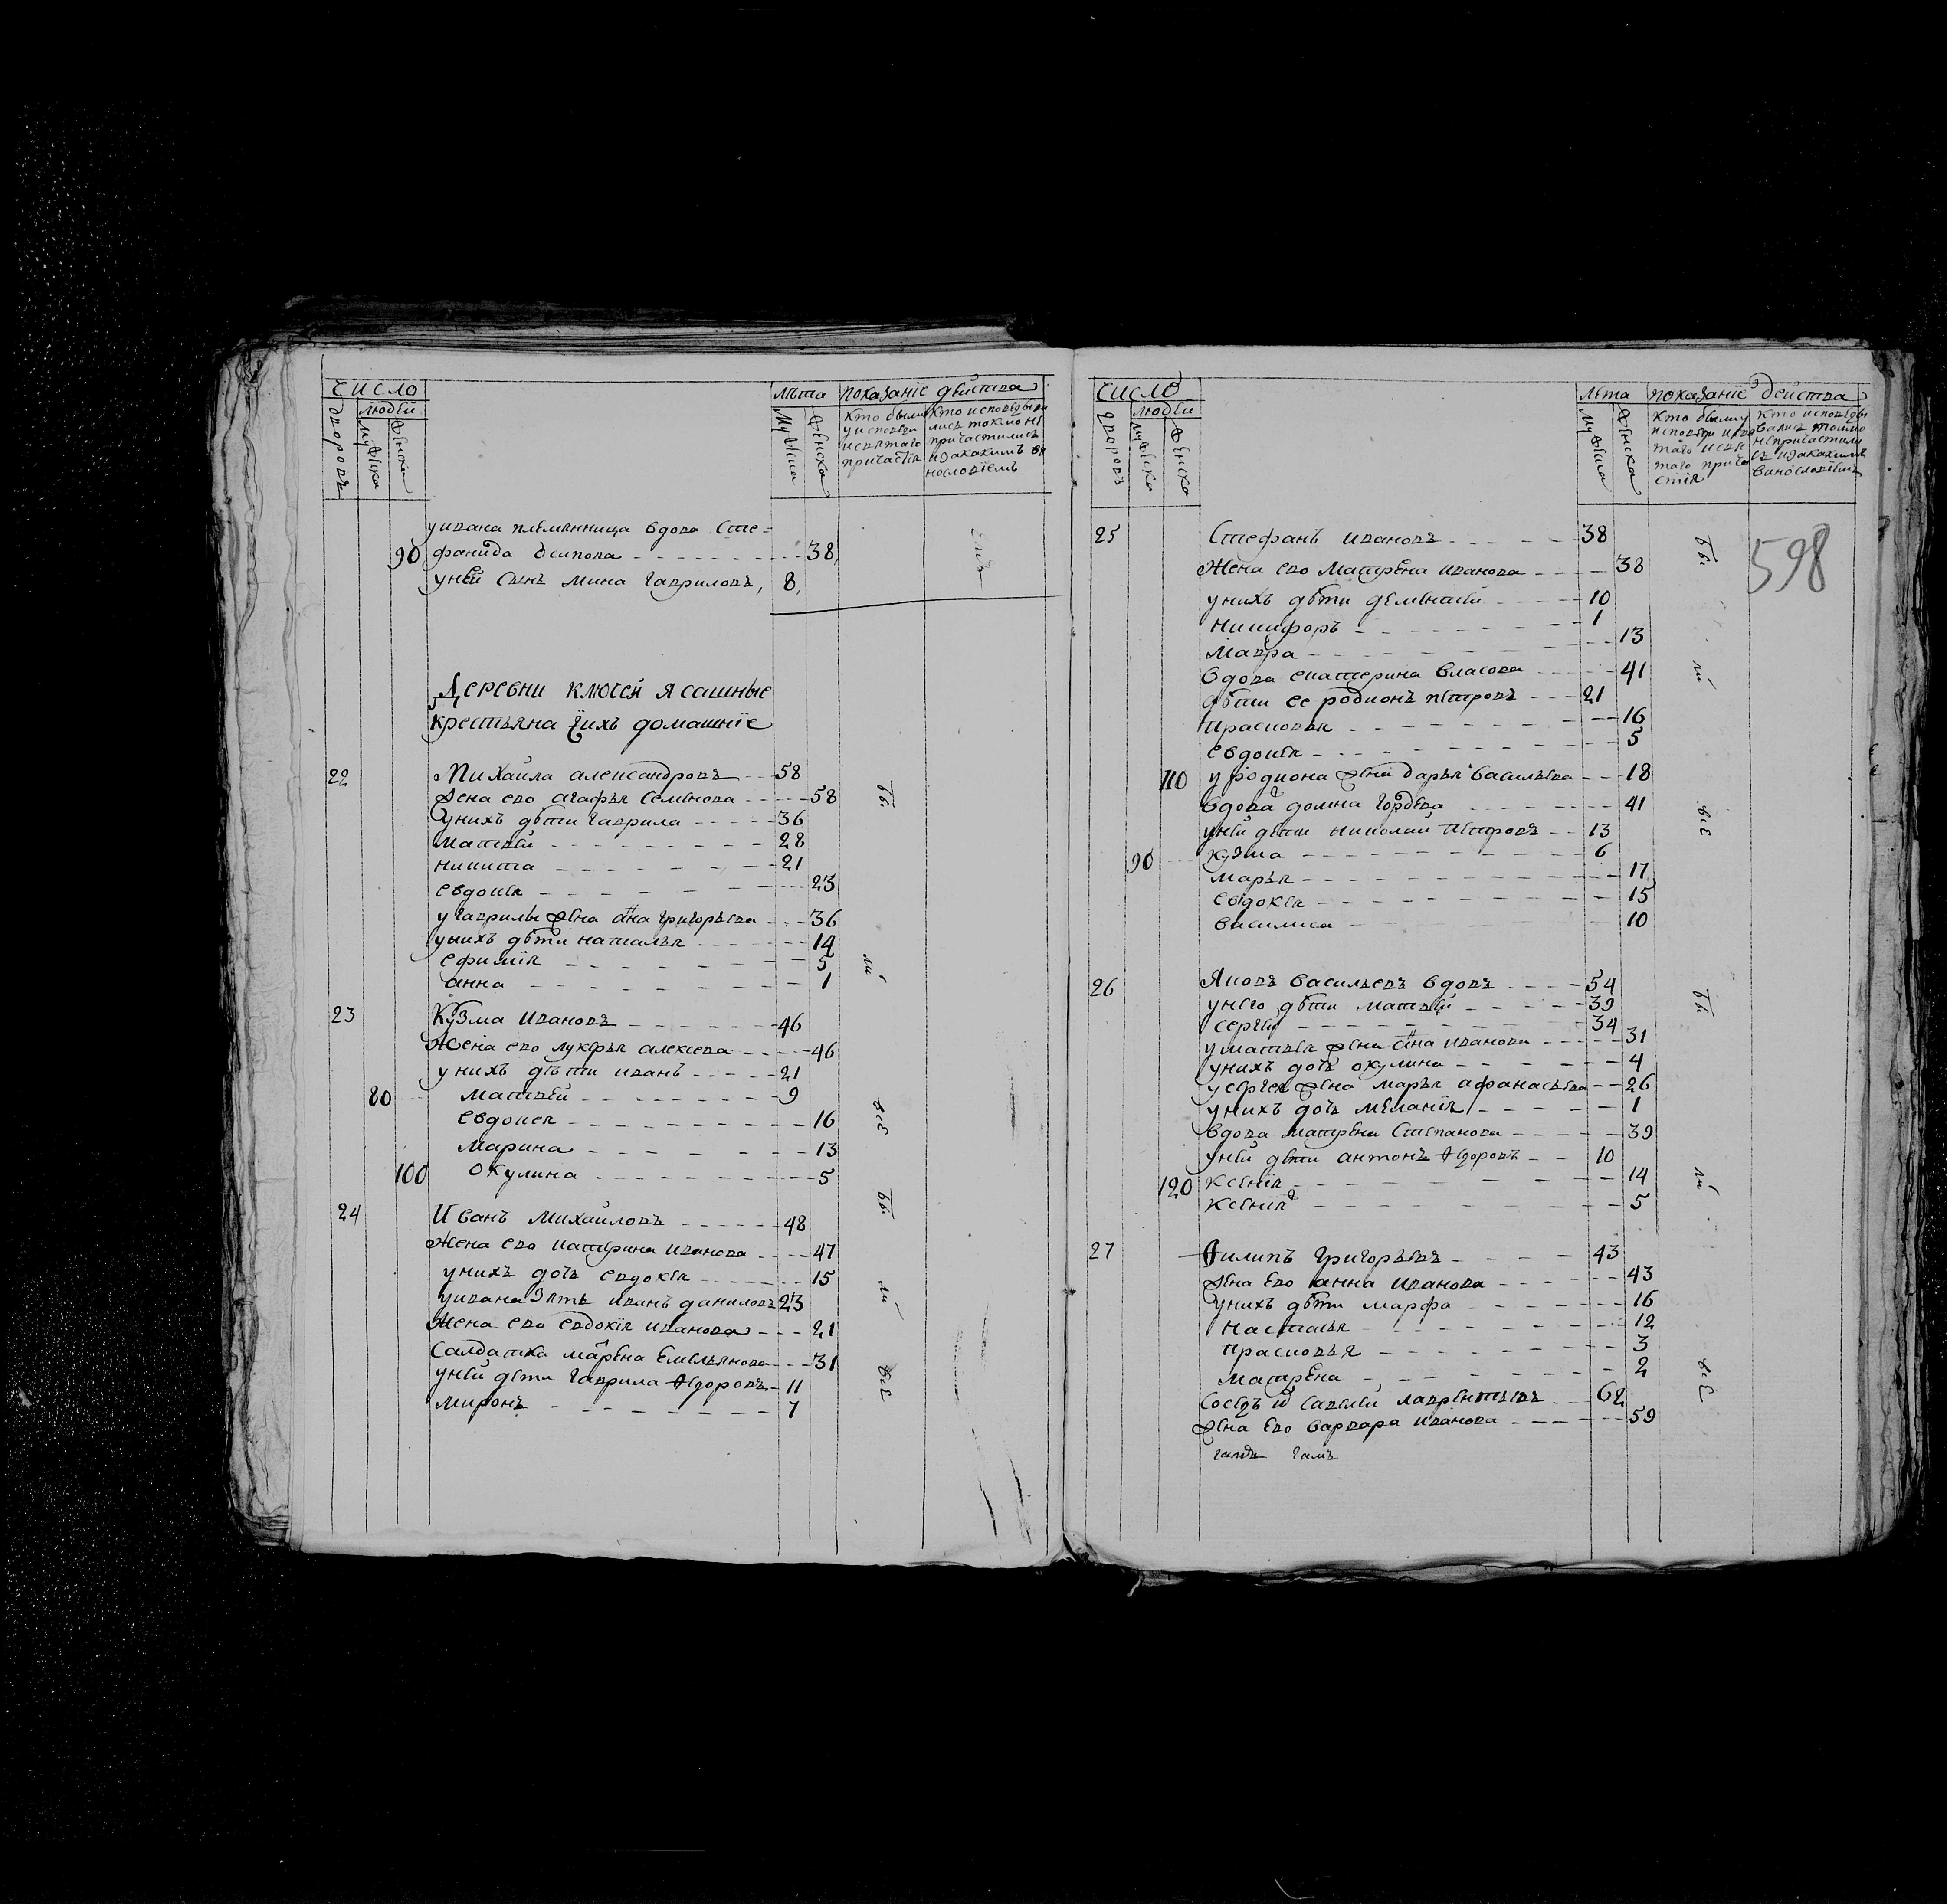 число
людей
дворовъ
мужеска
женска
лѣта
показаніе дѣйства
мужеска
женска
кто были
у исповѣди
и святаго
причастія
кто исповѣдыва
лись токмо не
причастились
и за какимъ ви
нословіемъ
у ивана племянница вдова сте=
90 фанида осипова 38
у ней сынъ мина гавриловъ, 8,
Деревни ключей ясашные
крестьяна и ихъ домашніе
22 Михаила александровъ 58
жена ево агафья семенова 58
у нихъ дѣти гаврила 36
матвей 28
никита 21
евдокия 23
у гаврилы жена анна григорьева 36
у нихъ дѣти наталья 14
ефимия 5
анна 1
23 Кузма ивановъ 46
жена ево лукерья алексеева 46
у нихъ дѣти иванъ 21
80 матвей 9
евдокея 16
марина 13
100 окулина 5
24 Иванъ михайловъ 48
жена ево катерина иванова 47
у нихъ дочь евдокея 15
у ивана зять иванъ даниловъ 23
жена ево евдокия иванова 21
салдатка марена емельянова 31
у ней дети гаврила ѳедоровъ 11
миронъ 7
бы
ли
все
бы
ли
все
число
людей
дворовъ
мужеска
женска
лѣта
показаніе действа
мужеска
женска
598
25 Стефанъ ивановъ 38
жена ево матрена иванова 38
у нихъ дѣти дементей 10
никифоръ 1
мавра 13
вдова екатерина власова 41
дѣти ее родионъ петровъ 21
прасковья 16
евдокея 5
110 у родиона жена дарья васильева 18
вдова домна гордеева 41
у ней дѣти николай петровъ 13
90 кузма 6
марья 17
евдокея 15
василиса 10
26 Яковъ васильевъ вдовъ 54
у него дѣти матвей 39
сергей 34
у матвея жена анна иванова 31
у нихъ дочь окулина 4
у сергея жена марья афанасьева 26
у нихъ дочь мелания 1
вдова матрена степанова 39
у ней дети антонъ ѳедоровъ 10
120 ксения 14
ксения 5
27 Филипъ григорьевъ 43
жена ево анна иванова 43
у нихъ дѣти марфа 16
насталья 12
прасковья 3
матрена 2
соседъ савелей лаврентьевъ 62
жена ево варвара иванова 59
бы
ли
все
бы
ли
все